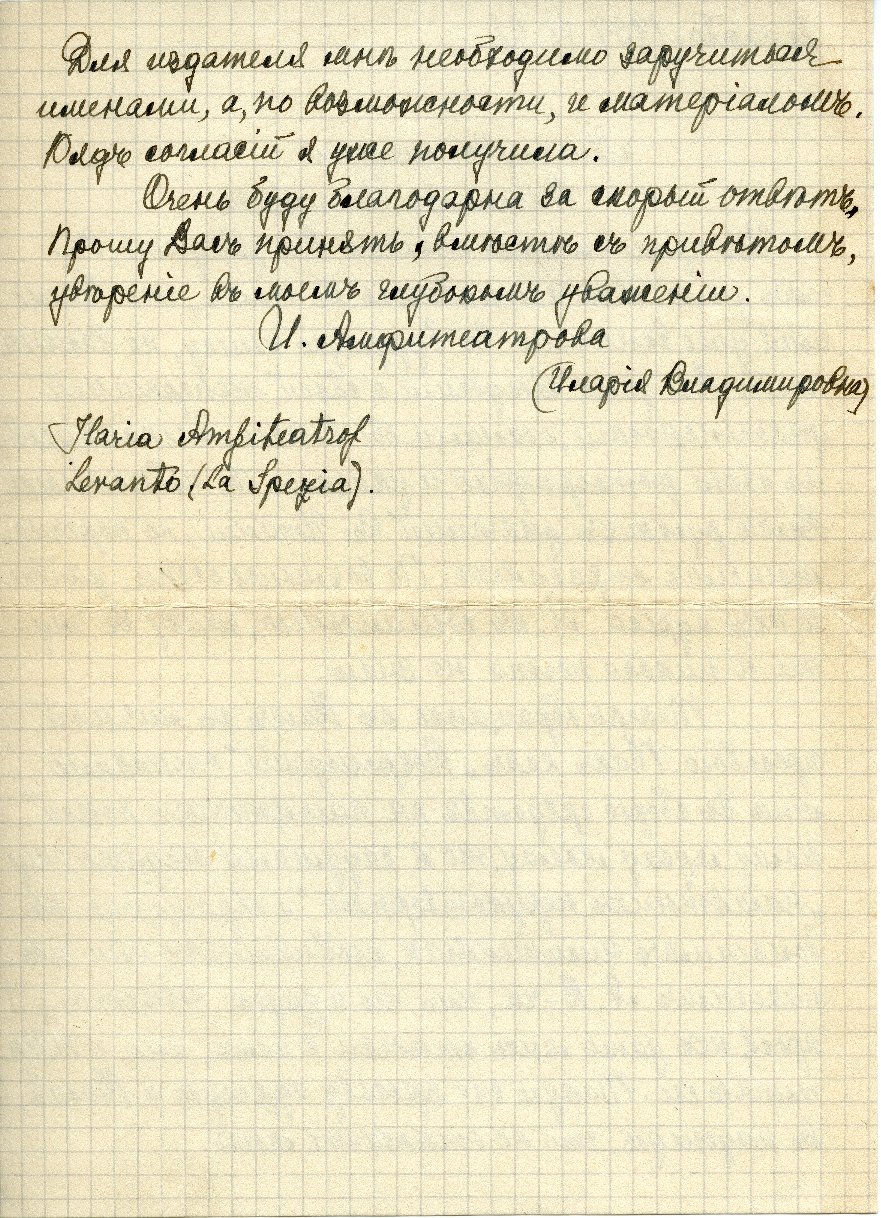 Для издателя мнѣ необходимо заручиться
именами, а, по возможности, и матеріаломъ.
Рядъ согласій я уже получила.
Очень буду благодарна за скорый отвѣтъ,
Прошу Васъ принять, вмѣстѣ съ привѣтомъ,
увѣреніе въ моемъ глубокомъ уваженіи.
И. Амфитеатрова
(Иларія Владимировна)
Ilaria Amfiteatrof
Levanto (La Spezia).